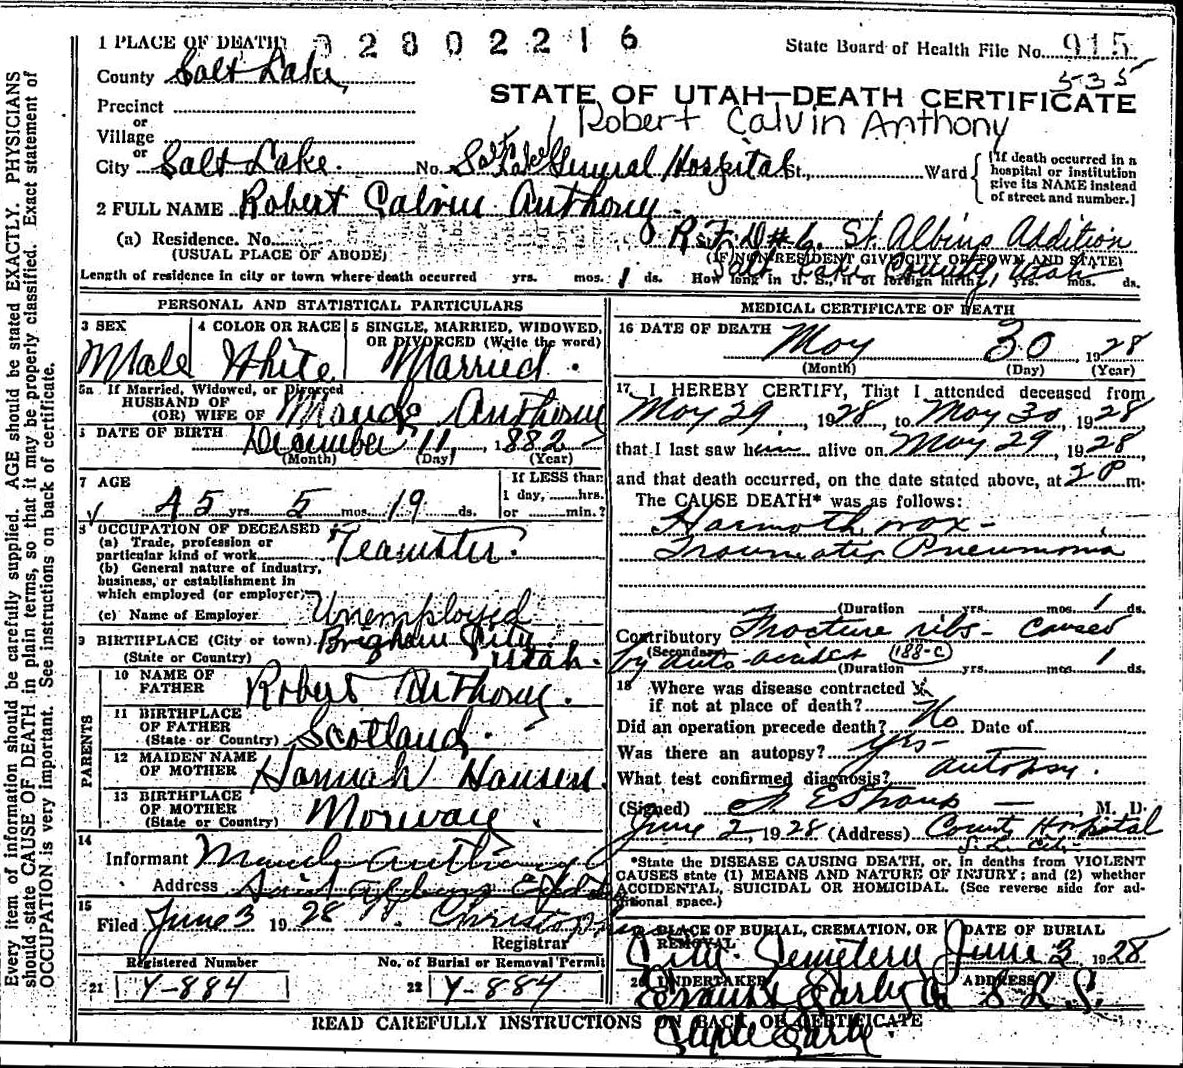 Every item of information should be carefully supplied. AGE should be stated EXACTLY. PHYSICIANS
should state CAUSE OF DEATH in plain terms, so that it may be properly classified. Exact statement of
OCCUPATION is very important. See instructions on back of certificate.
1 PLACE OF DEATH
2802216
State Board of Health File No. 915
535
County Salt Lake
STATE OF UTAH—DEATH CERTIFICATE
Precinct
Robert Calvin Anthony
or
Village
or
City Salt Lake. No. Salt Lake General Hospital St., Ward
[If death occurred in a
hospital or institution
give its NAME instead
of street and number.]
2 FULL NAME Robert Calvin Anthony.
(a) Residence. No. R.F.D #6. St. Albins Addition
(USUAL PLACE OF ABODE) (IF NON-RESIDENT GIVE CITY OR TOWN AND STATE)
Salt Lake County, Utah
Length of residence in city or town where death occurred yrs. mos. 1 ds. How long in U. S., if of foreign birth? yrs. mos. ds.
PERSONAL AND STATISTICAL PARTICULARS
3 SEX
Male
4 COLOR OR RACE
White
5 SINGLE, MARRIED, WIDOWED,
OR DIVORCED (Write the word)
Married.
5a If Married, Widowed, or Divorced
HUSBAND OF
(OR) WIFE OF Maude Anthony
DATE OF BIRTH December 11, 1882
(Month) (Day) (Year)
7 AGE
45 yrs. 5 mos. 19 ds.
If LESS than
1 day, hrs.
or min.?
8 OCCUPATION OF DECEASED
(a) Trade, profession or
particular kind of work Teamster.
(b) General nature of industry,
business, or establishment in
which employed (or employer)
(c) Name of Employer Unemployed
9 BIRTHPLACE (City or town) Brigham City
(State or Country) Utah.
PARENTS
10 NAME OF
FATHER Robert Anthony.
11 BIRTHPLACE
OF FATHER
(State or Country) Scotland.
12 MAIDEN NAME
OF MOTHER Hannah Hansen.
13 BIRTHPLACE
OF MOTHER
(State or Country) Norway
14
Informant Maude Anthony
Address Saint Albins
15
Filed June 3 1928
Registrar
Registered Number No. of Burial or Removal Permit
21 Y-884 22 Y-884
MEDICAL CERTIFICATE OF DEATH
16 DATE OF DEATH May 30, 1928
(Month) (Day) (Year)
17 I HEREBY CERTIFY, That I attended deceased from
May 29, 1928, to May 30, 1928
that I last saw him alive on May 29, 1928,
and that death occurred, on the date stated above, at 2 P m.
The CAUSE DEATH* was as follows:
Harmothorax -
Traumatic Pneumonia
(Duration yrs. mos. 1 ds.
Contributory Fracture ribs - caused
(Secondary)
by auto accident (188-c)
(Duration yrs. mos. 1 ds.
18 Where was disease contracted
if not at place of death?
Did an operation precede death? No Date of
Was there an autopsy? yes -
What test confirmed diagnosis? autopsy.
(Signed) M. D.
June 2, 1928 (Address) County Hospital
S. L. City
*State the DISEASE CAUSING DEATH, or, in deaths from VIOLENT
CAUSES state (1) MEANS AND NATURE OF INJURY; and (2) whether
ACCIDENTAL, SUICIDAL OR HOMICIDAL. (See reverse side for ad-
ditional space.)
PLACE OF BURIAL, CREMATION, OR
REMOVAL
City Cemetery
DATE OF BURIAL
June 3, 1928
20 UNDERTAKER
ADDRESS
S. L. C.
READ CAREFULLY INSTRUCTIONS ON BACK OF CERTIFICATE